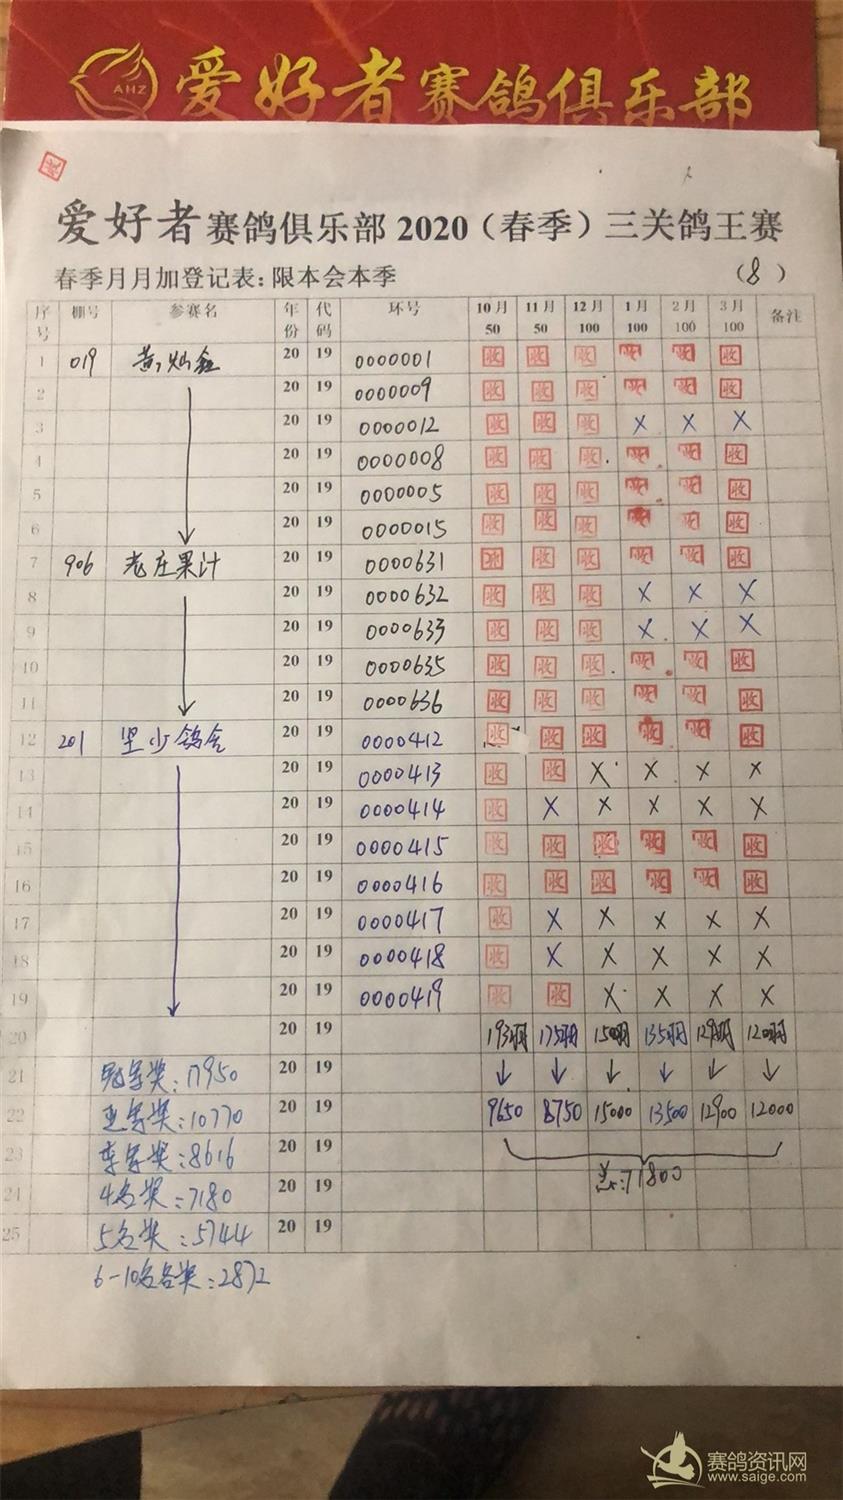 AHZ 爱好者赛鸽俱乐部
收
爱好者赛鸽俱乐部2020（春季）三关鸽王赛
春季月月加登记表：限本会本季 （8）
序号 棚号 参赛名 年份 代码 环号 10月50 11月50 12月100 1月100 2月100 3月100 备注
1 019 黄灿鑫 20 19 0000001 收 收 收 收 收 收
2 20 19 0000009 收 收 收 收 收 收
3 20 19 0000012 收 收 收 X X X
4 20 19 0000008 收 收 收 收 收 收
5 20 19 0000005 收 收 收 收 收 收
6 20 19 0000015 收 收 收 收 收 收
7 906 老庄果汁 20 19 0000631 收 收 收 收 收 收
8 20 19 0000632 收 收 收 X X X
9 20 19 0000633 收 收 收 X X X
10 20 19 0000635 收 收 收 收 收 收
11 20 19 0000636 收 收 收 收 收 收
12 201 坚少鸽舍 20 19 0000412 收 收 收 收 收 收
13 20 19 0000413 收 收 X X X X
14 20 19 0000414 收 X X X X X
15 20 19 0000415 收 收 收 收 收 收
16 20 19 0000416 收 收 收 收 收 收
17 20 19 0000417 收 X X X X X
18 20 19 0000418 收 X X X X X
19 20 19 0000419 收 收 X X X X
20 20 19 193羽 175羽 150羽 135羽 129羽 120羽
21 冠军奖：17950 20 19
22 亚军奖：10770 20 19 9650 8750 15000 13500 12900 12000
23 季军奖：8616 20 19
24 4名奖：7180 20 19 总：71800
25 5名奖：5744 20 19
6-10名各奖：2872
赛鸽资讯网
www.saige.com